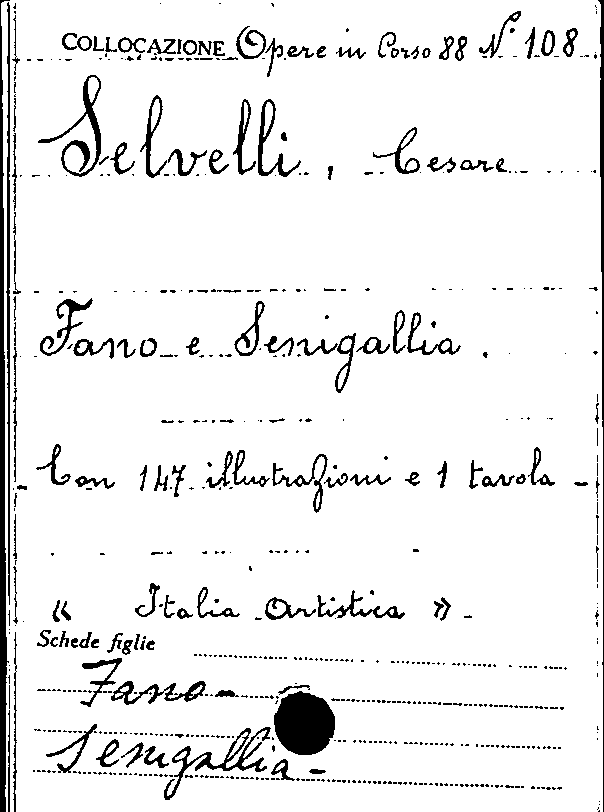 COLLOCAZIONE Opere in Corso 88 N° 108
Selvelli, Cesare
Fano e Senigallia.
Con 147 illustrazioni e 1 tavola -
« Italia artistica » -
Schede figlie
Fano -
Senigallia -